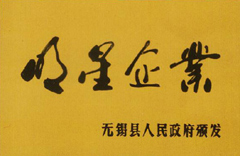 明星企業
无锡县人民政府颁发